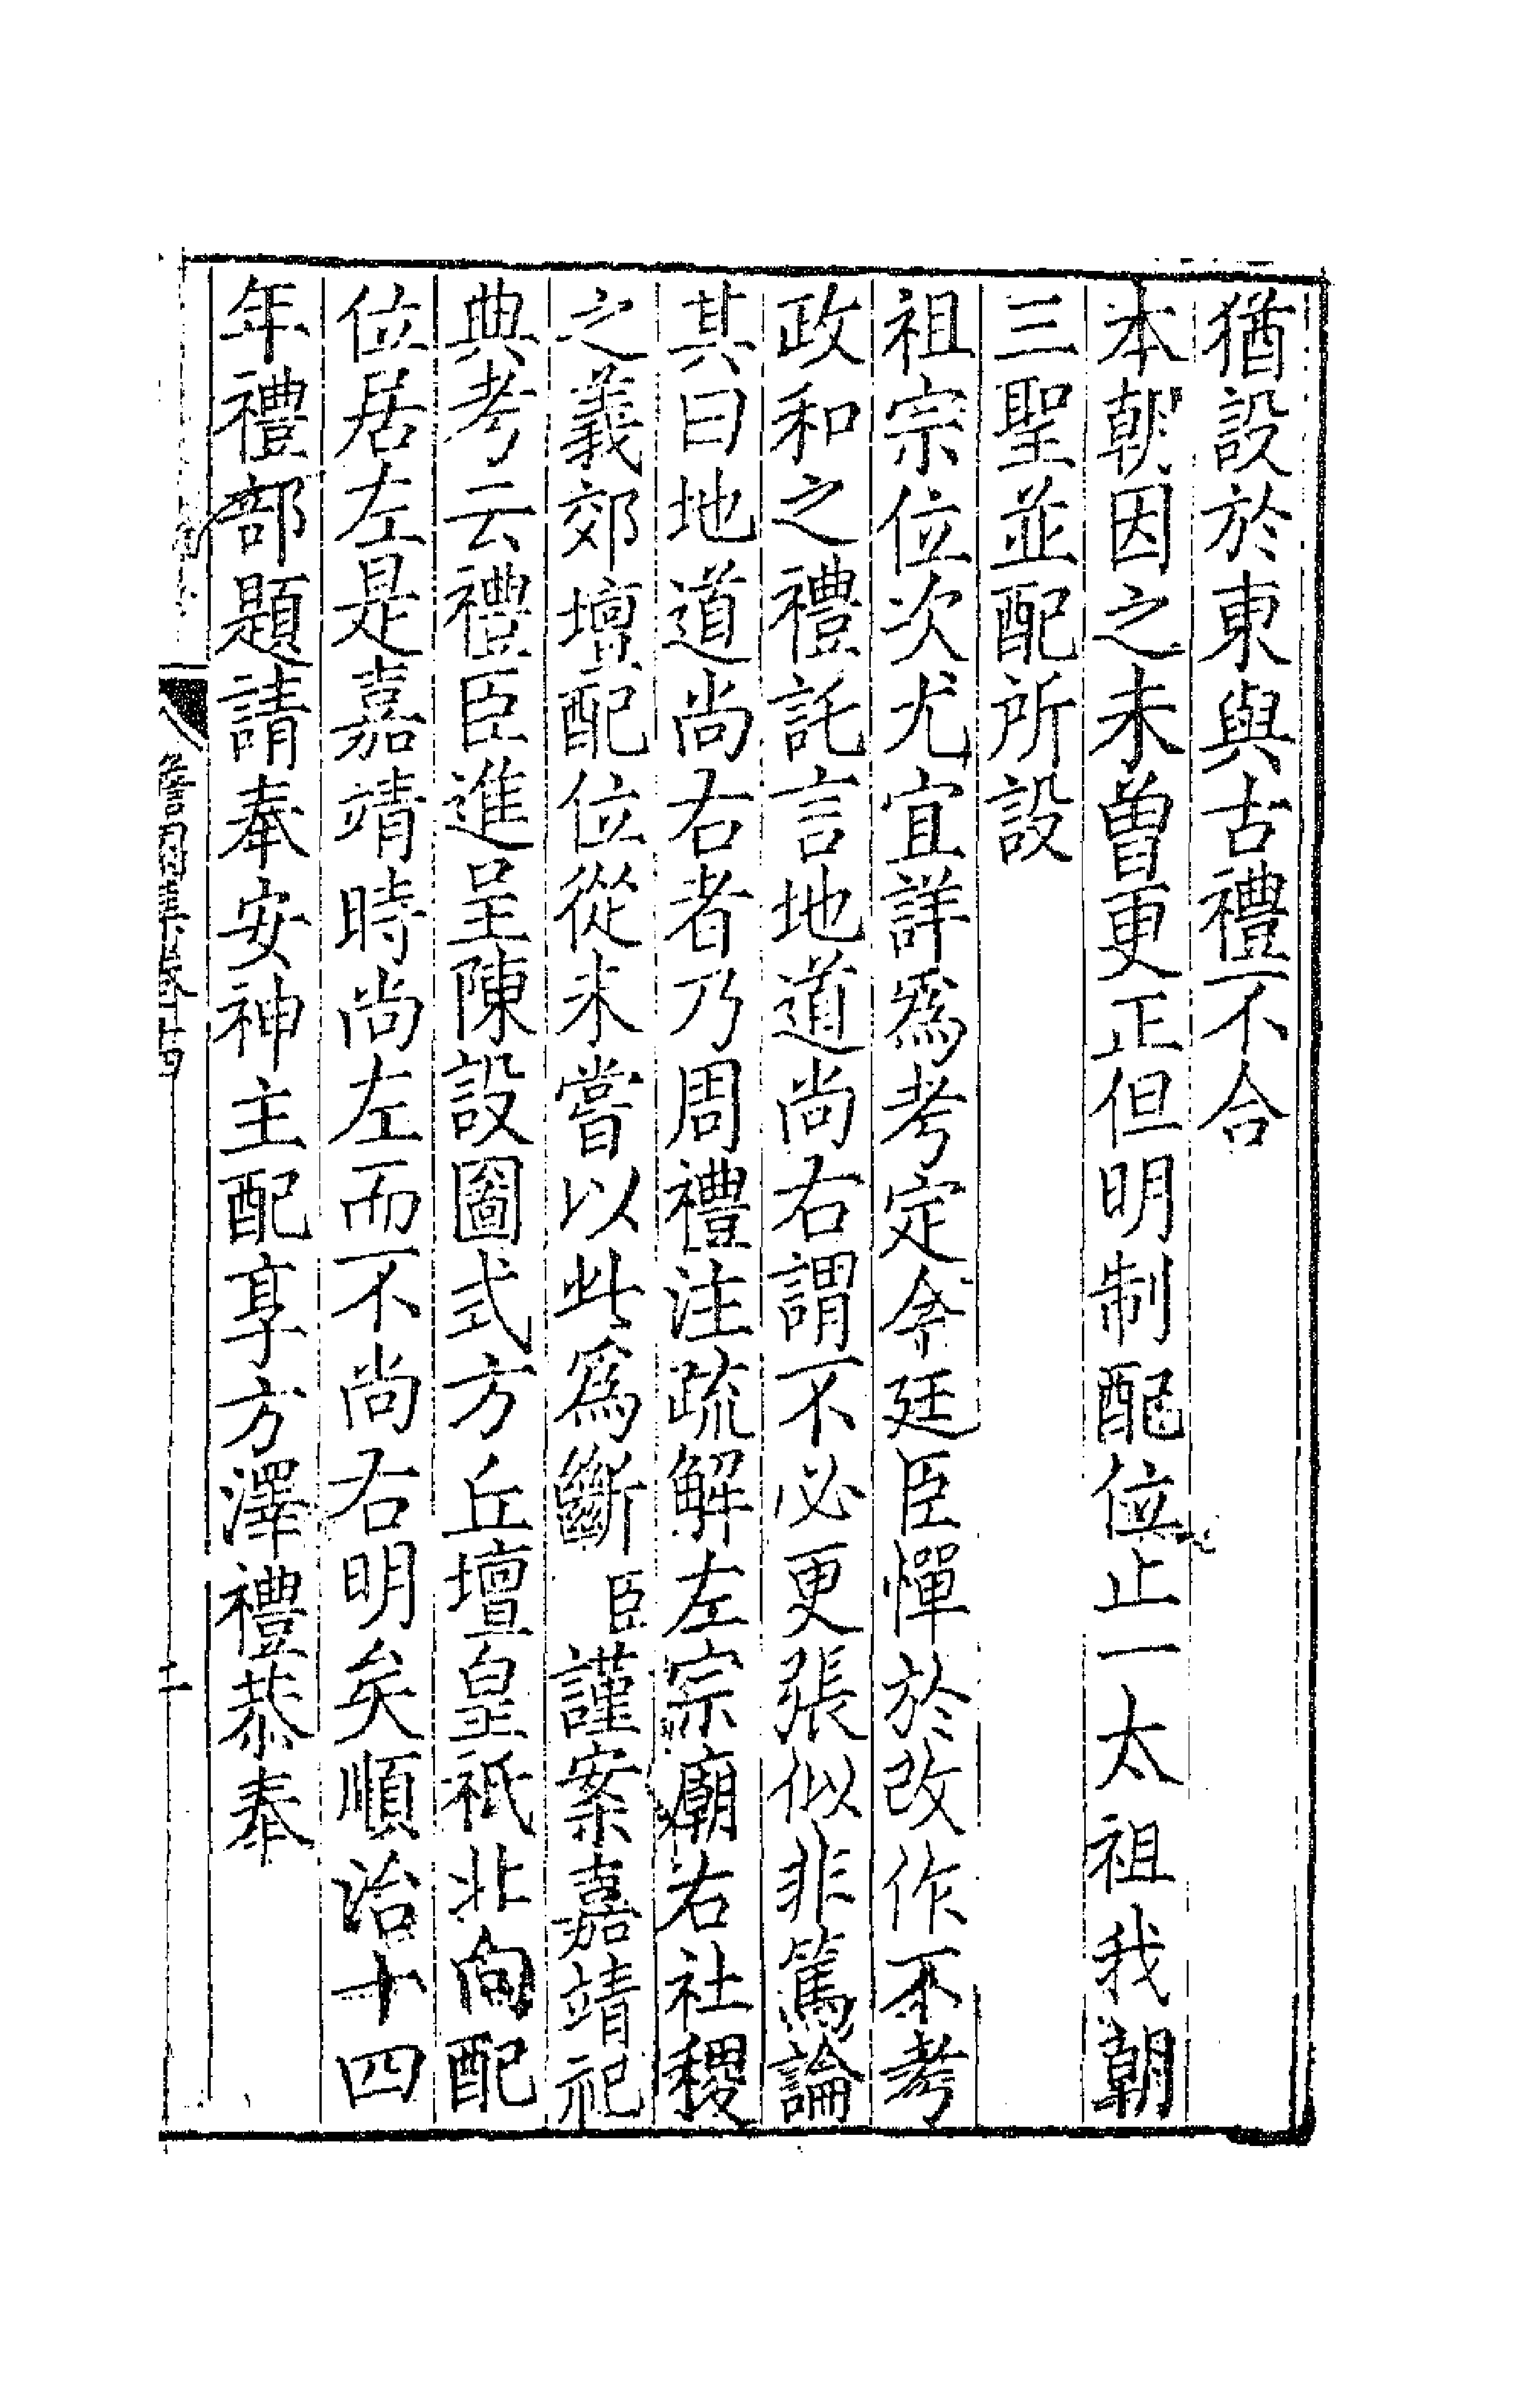 猶設於東與古禮不合
本朝因之未曾更正但明制配位止一太祖我朝
三聖並配所設
祖宗位次尤宜詳爲考定今廷臣憚於改作不考
政和之禮託言地道尚右謂不必更張似非篤論
其曰地道尚右者乃周禮注疏解左宗廟右社稷
之義郊壇配位從未嘗以此爲斷臣謹案嘉靖祀
典考云禮臣進呈陳設圖式方丘壇皇祇北向配
位居左是嘉靖時尚左而不尚右明矣順治十四
年禮部題請奉安神主配享方澤禮恭奉
憺園集卷十四